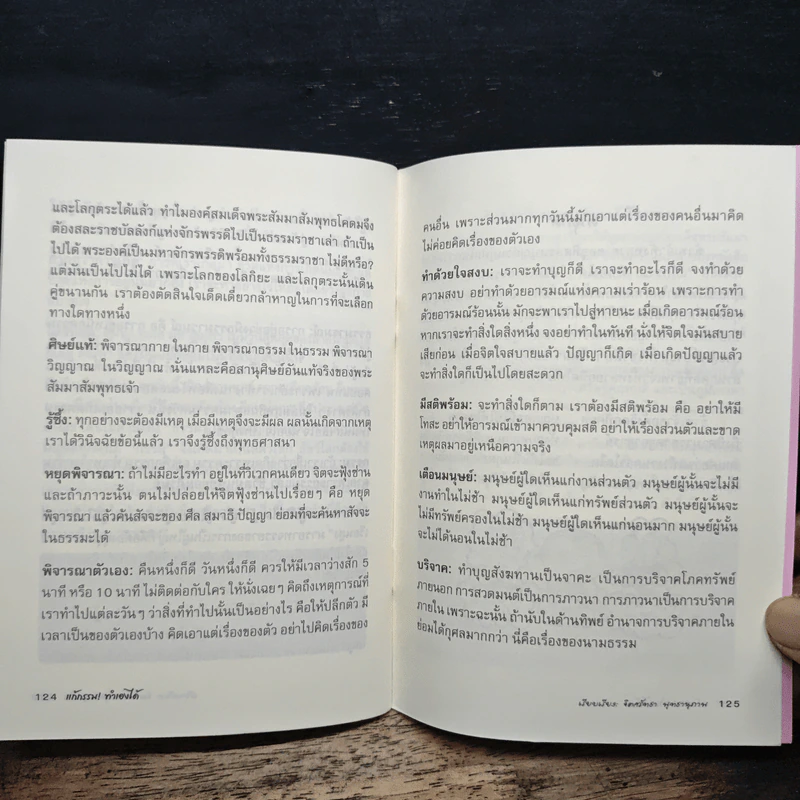 และโลกุตระได้แล้ว ทำไมองค์สมเด็จพระสัมมาสัมพุทธโคดมจึง
ต้องสละราชบัลลังก์แห่งจักรพรรดิไปเป็นธรรมราชาเล่า ถ้าเป็น
ไปได้ พระองค์เป็นมหาจักรพรรดิพร้อมทั้งธรรมราชา ไม่ดีหรือ?
แต่มันเป็นไปไม่ได้ เพราะโลกของโลกิยะ และโลกุตระนั้นเดิน
คู่ขนานกัน เราต้องตัดสินใจเด็ดเดี่ยวกล้าหาญในการที่จะเลือก
ทางใดทางหนึ่ง
ศิษย์แท้: พิจารณากาย ในกาย พิจารณาธรรม ในธรรม พิจารณา
วิญญาณ ในวิญญาณ นั่นแหละคือสานุศิษย์อันแท้จริงของพระ
สัมมาสัมพุทธเจ้า
รู้ซึ้ง: ทุกอย่างจะต้องมีเหตุ เมื่อมีเหตุจึงจะมีผล ผลนั้นเกิดจากเหตุ
เราได้วินิจฉัยข้อนี้แล้ว เราจึงรู้ซึ้งถึงพุทธศาสนา
หยุดพิจารณา: ถ้าไม่มีอะไรทำ อยู่ในที่วิเวกคนเดียว จิตจะฟุ้งซ่าน
และถ้าภาวะนั้น ตนไม่ปล่อยให้จิตฟุ้งซ่านไปเรื่อยๆ คือ หยุด
พิจารณา แล้วค้นสัจจะของ ศีล สมาธิ ปัญญา ย่อมที่จะค้นหาสัจจะ
ในธรรมะได้
พิจารณาตัวเอง: คืนหนึ่งก็ดี วันหนึ่งก็ดี ควรให้มีเวลาว่างสัก 5
นาที หรือ 10 นาที ไม่ติดต่อกับใคร ให้นั่งเฉยๆ คิดถึงเหตุการณ์ที่
เราทำไปแต่ละวันๆ ว่าสิ่งที่ทำไปนั้นเป็นอย่างไร คือให้ปลีกตัว มี
เวลาเป็นของตัวเองบ้าง คิดเอาแต่เรื่องของตัว อย่าไปคิดเรื่องของ
124 แก้กรรม! ทำเองได้
คนอื่น เพราะส่วนมากทุกวันนี้มักเอาแต่เรื่องของคนอื่นมาคิด
ไม่ค่อยคิดเรื่องของตัวเอง
ทำด้วยใจสงบ: เราจะทำบุญก็ดี เราจะทำอะไรก็ดี จงทำด้วย
ความสงบ อย่าทำด้วยอารมณ์แห่งความเร่าร้อน เพราะการทำ
ด้วยอารมณ์ร้อนนั้น มักจะพาเราไปสู่หายนะ เมื่อเกิดอารมณ์ร้อน
หากเราจะทำสิ่งใดสิ่งหนึ่ง จงอย่าทำในทันที นั่งให้จิตใจมันสบาย
เสียก่อน เมื่อจิตใจสบายแล้ว ปัญญาก็เกิด เมื่อเกิดปัญญาแล้ว
จะทำสิ่งใดก็เป็นไปโดยสะดวก
มีสติพร้อม: จะทำสิ่งใดก็ตาม เราต้องมีสติพร้อม คือ อย่าให้มี
โทสะ อย่าให้อารมณ์เข้ามาควบคุมสติ อย่าให้เรื่องส่วนตัวและขาด
เหตุผลมาอยู่เหนือความจริง
เตือนมนุษย์: มนุษย์ผู้ใดเห็นแก่งานส่วนตัว มนุษย์ผู้นั้นจะไม่มี
งานทำในไม่ช้า มนุษย์ผู้ใดเห็นแก่ทรัพย์ส่วนตัว มนุษย์ผู้นั้นจะ
ไม่มีทรัพย์ครองในไม่ช้า มนุษย์ผู้ใดเห็นแก่นอนมาก มนุษย์ผู้นั้น
จะไม่ได้นอนในไม่ช้า
บริจาค: ทำบุญสังฆทานเป็นจาคะ เป็นการบริจาคโภคทรัพย์
ภายนอก การสวดมนต์เป็นการภาวนา การภาวนาเป็นการบริจาค
ภายใน เพราะฉะนั้น ถ้านับในด้านทิพย์ อำนาจการบริจาคภายใน
ย่อมได้กุศลมากกว่า นี่คือเรื่องของนามธรรม
เรียบเรียง: จิตศรัทธา พุทธานุภาพ 125